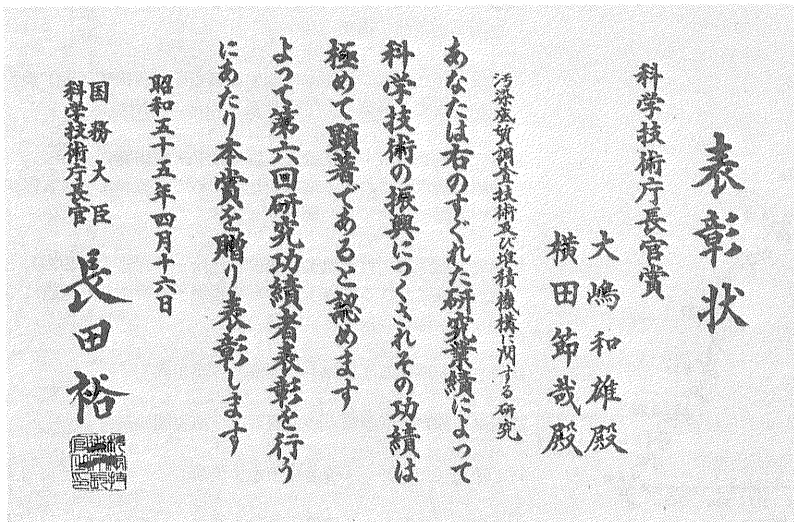 表彰状
科学技術庁長官賞
大嶋和雄殿
横田節哉殿
汚染底質調査技術及び堆積機構に関する研究
あなたは右のすぐれた研究業績によって
科学技術の振興につくされその功績は
極めて顕著であると認めます
よって第六回研究功績者表彰を行う
にあたり本賞を贈り表彰します
昭和五十五年四月十六日
国務大臣
科学技術庁長官
長田裕